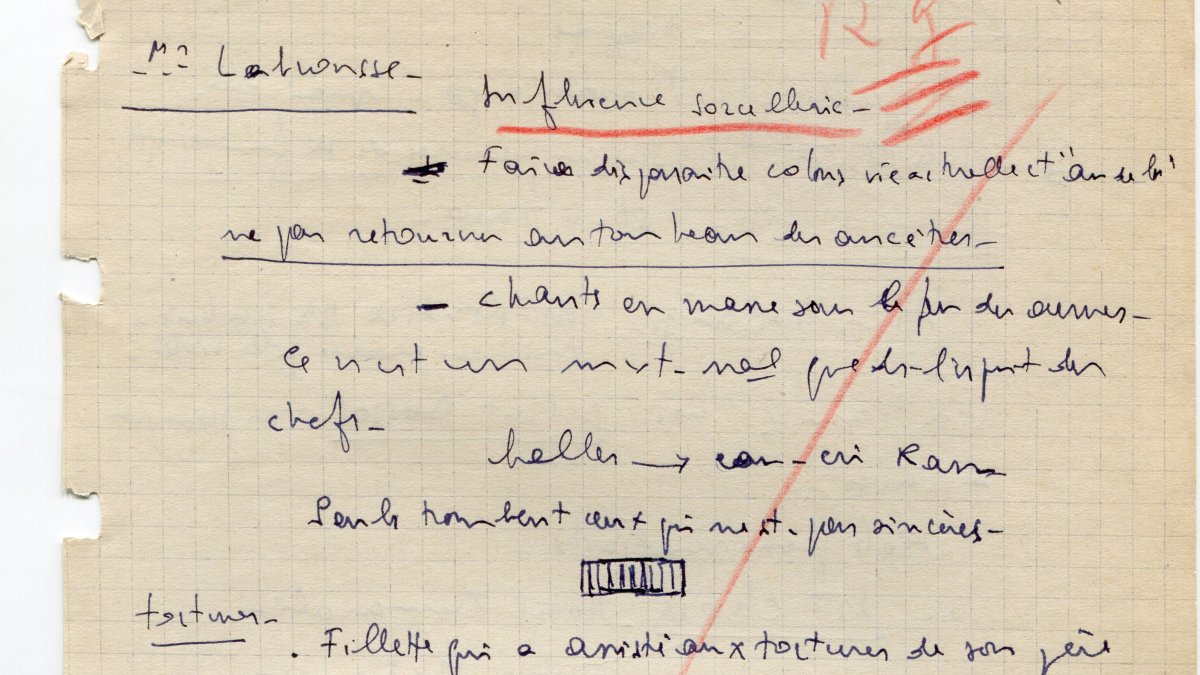 Mr Labrousse -
Influence sorcellerie -
Faire disparaitre colons vie actuelle et "au delà"
ne pas retourner au tombeau des ancêtres -
- chants en masse sous le feu des armes -
Ce n'est un que de l'esprit des
chefs -
balles → eau - cri Rano
Seuls tombent ceux qui n'est pas sincères -
tortures -
. Fillette qui a assisté aux tortures de son père